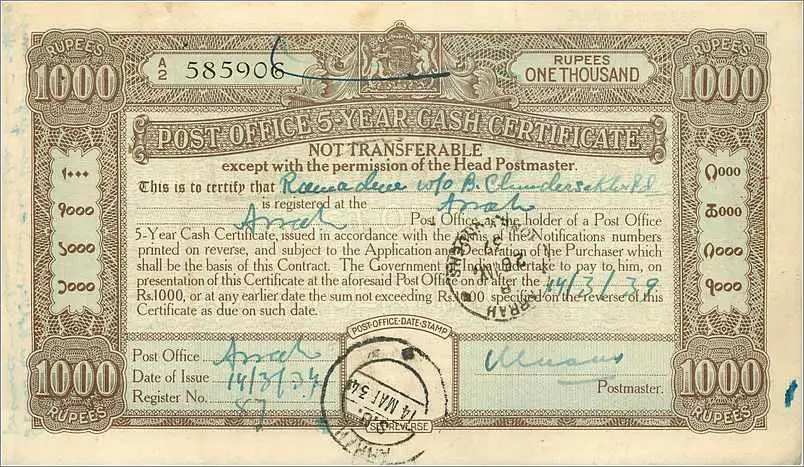 RUPEES 1000
A/2 585906
RUPEES ONE THOUSAND
RUPEES 1000
POST OFFICE 5-YEAR CASH CERTIFICATE
NOT TRANSFERABLE
except with the permission of the Head Postmaster.
This is to certify that w/o B.
is registered at the Arrah
Arrah Post Office as the holder of a Post Office
5-Year Cash Certificate, issued in accordance with the terms of the Notifications numbers
printed on reverse, and subject to the Application and Declaration of the Purchaser which
shall be the basis of this Contract. The Government of India undertake to pay to him, on
presentation of this Certificate at the aforesaid Post Office on or after the 14/3/39
Rs.1000, or at any earlier date the sum not exceeding Rs.1000 specified on the reverse of this
Certificate as due on such date.
१०००
POST-OFFICE-DATE-STAMP
Post Office Arrah
Date of Issue 14/3/34
Register No. 87
14 MAR 34
ARRAH
Postmaster.
SEE REVERSE
1000 RUPEES
1000 RUPEES